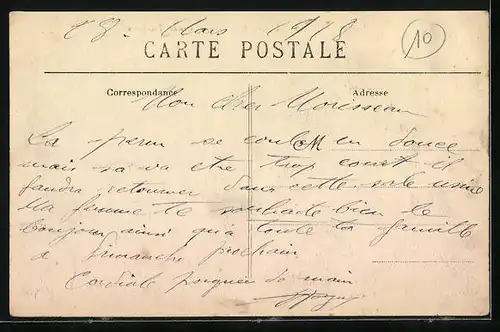 28 Mars 1918
10
CARTE POSTALE
Correspondance
Adresse
Mon cher Morisseau
La perm se coule en douce
mais sa va etre trop court il
faudra retourner dans cette sale usine
Ma femme te souhaite bien le
bonjour ainsi qu'a toute ta famille
a Dimanche prochain
Cordiale poignee de main